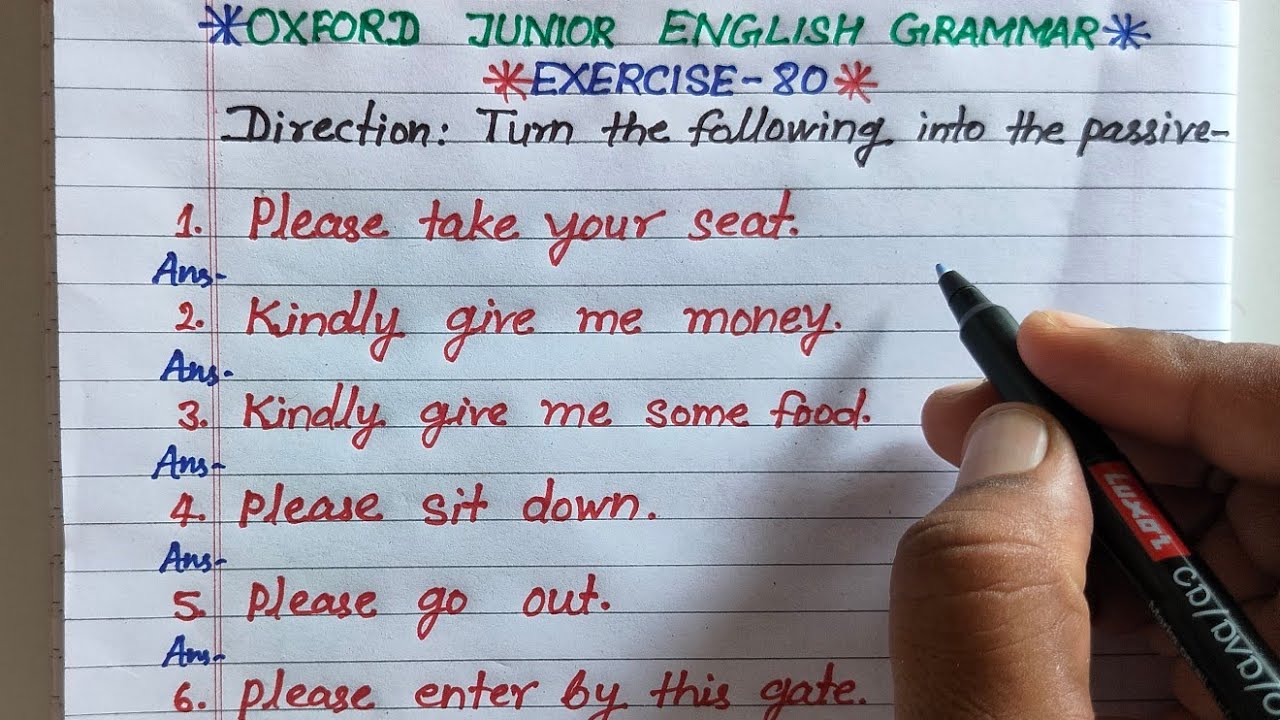 *OXFORD JUNIOR ENGLISH GRAMMAR*
*EXERCISE-80*
Direction: Turn the following into the passive-
1. Please take your seat.
Ans-
2. Kindly give me money.
Ans-
3. Kindly give me some food.
Ans-
4. Please sit down.
Ans-
5. Please go out.
Ans-
6. Please enter by this gate.
LUXOR
CD/DVD/O